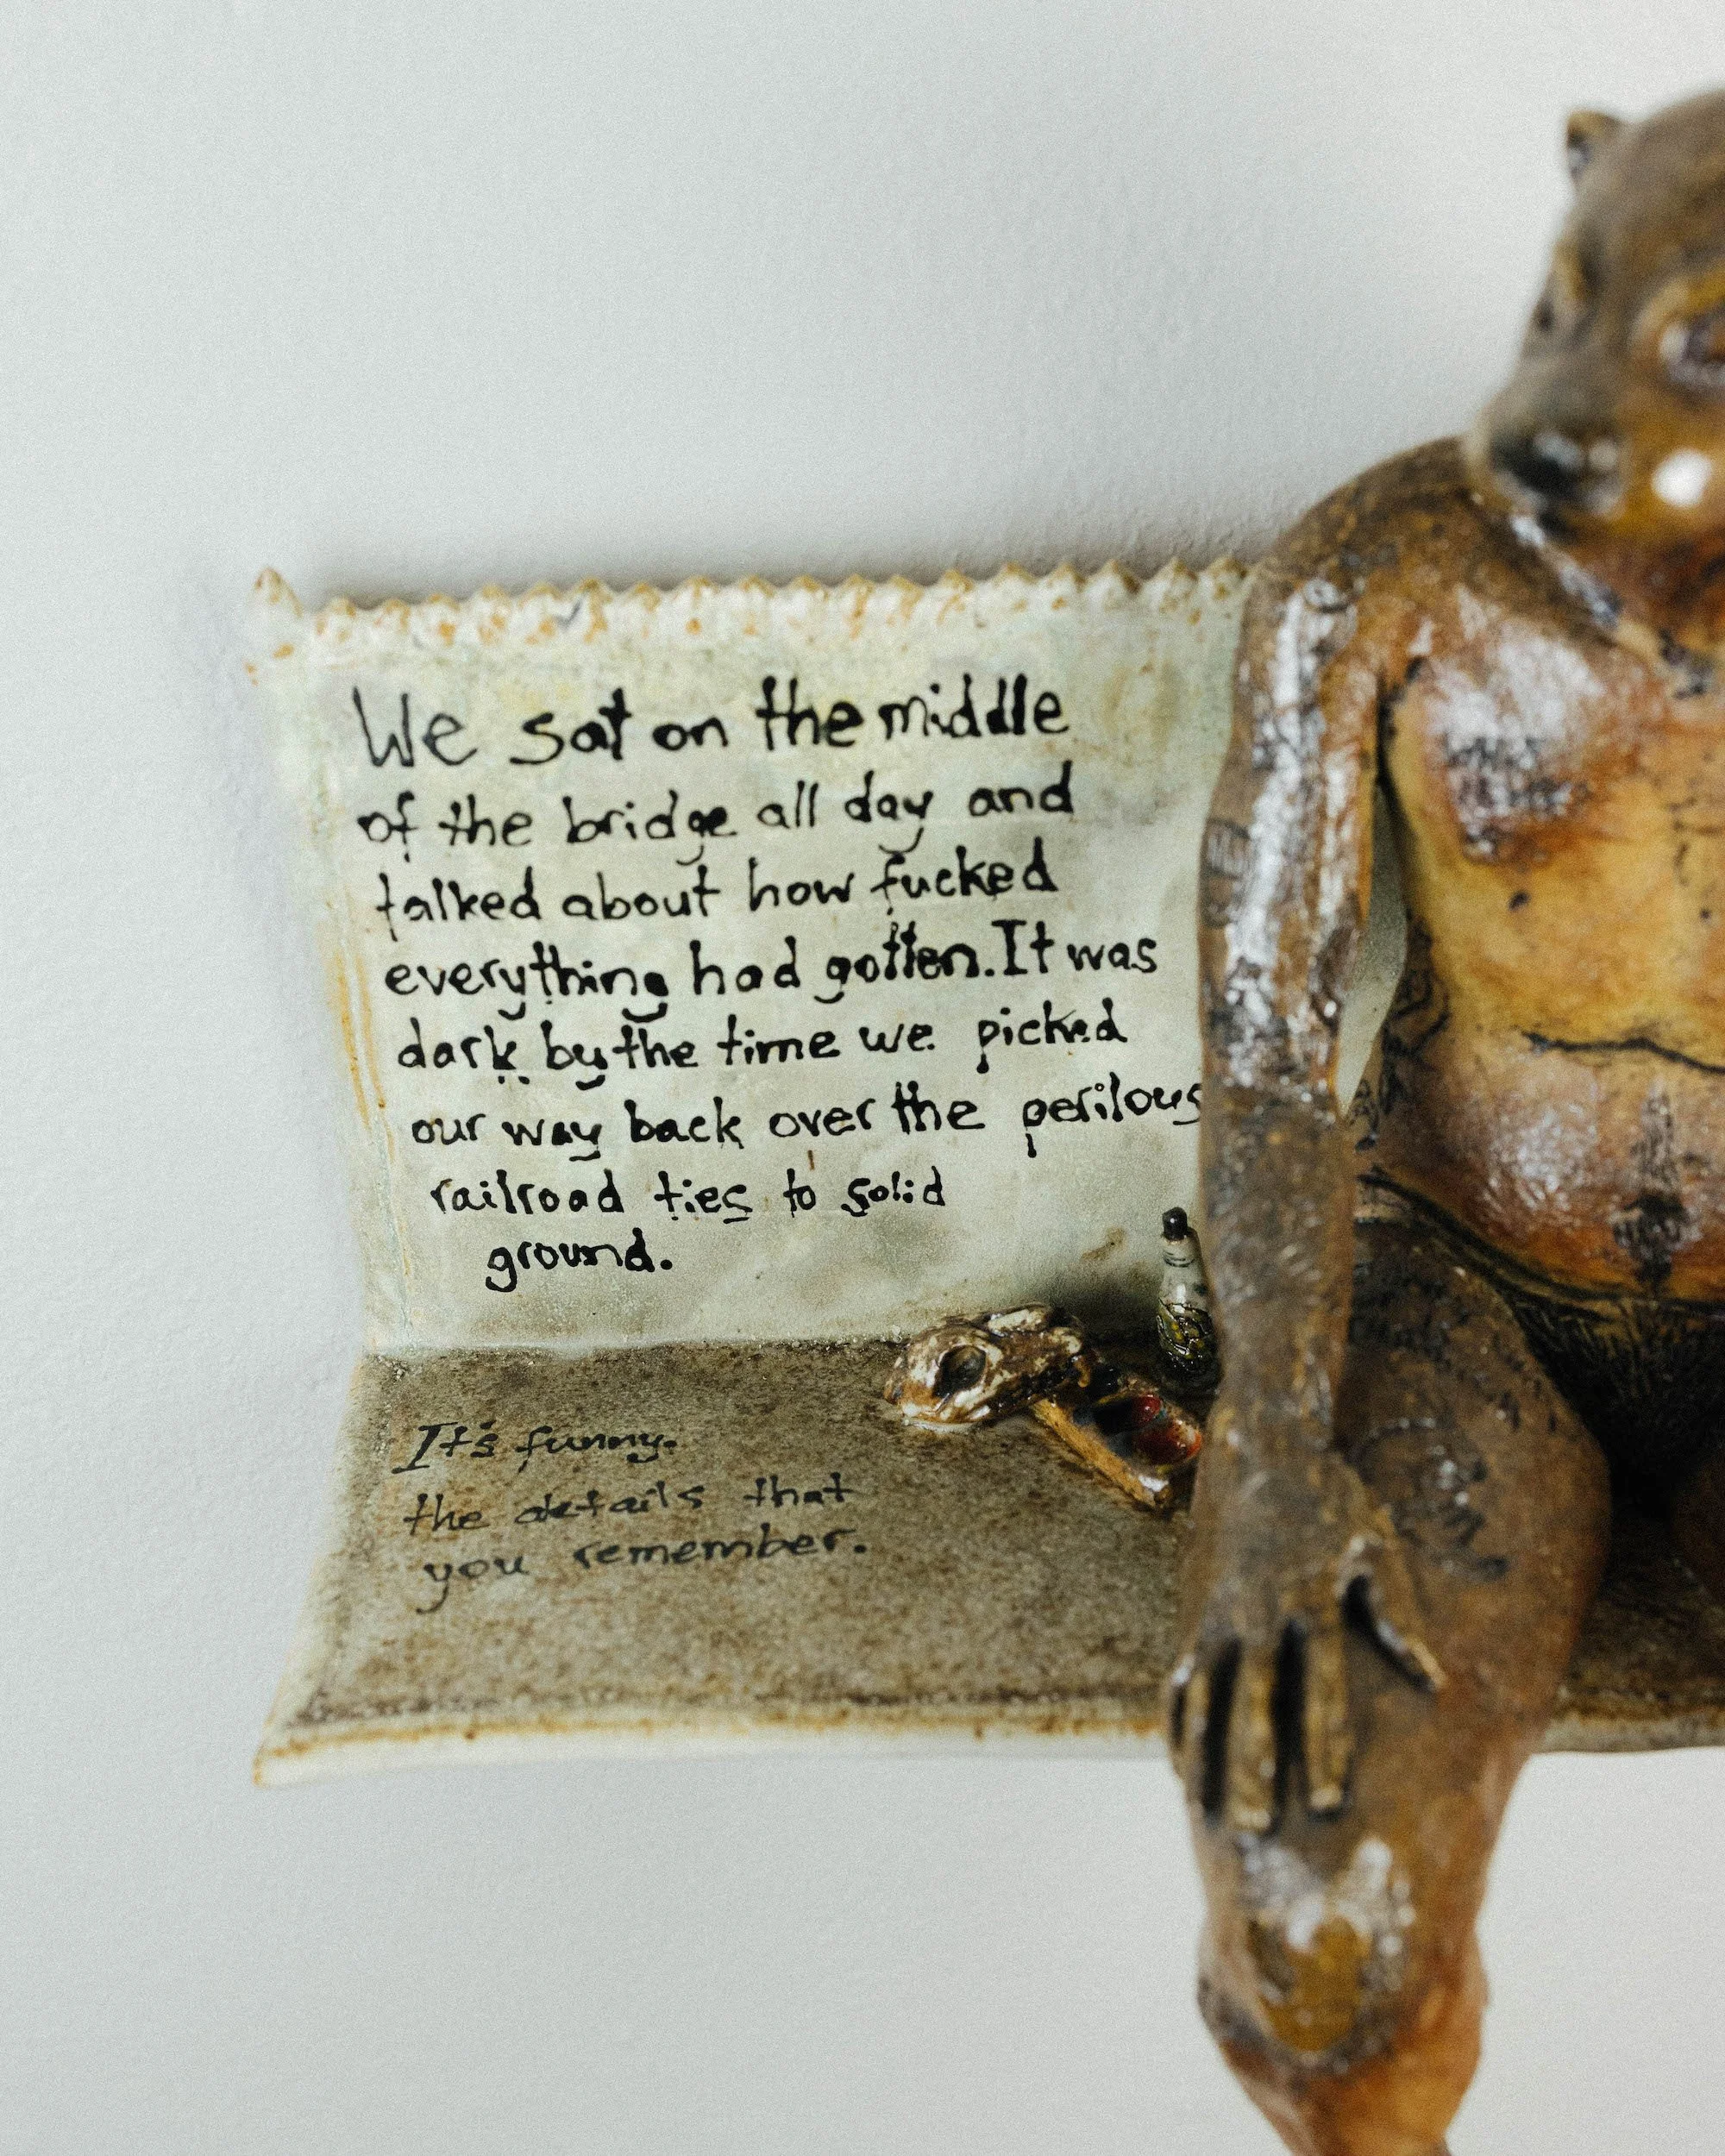 We sat on the middle
of the bridge all day and
talked about how fucked
everything had gotten. It was
dark by the time we picked
our way back over the perilous
railroad ties to solid
ground.
It's funny.
the details that
you remember.